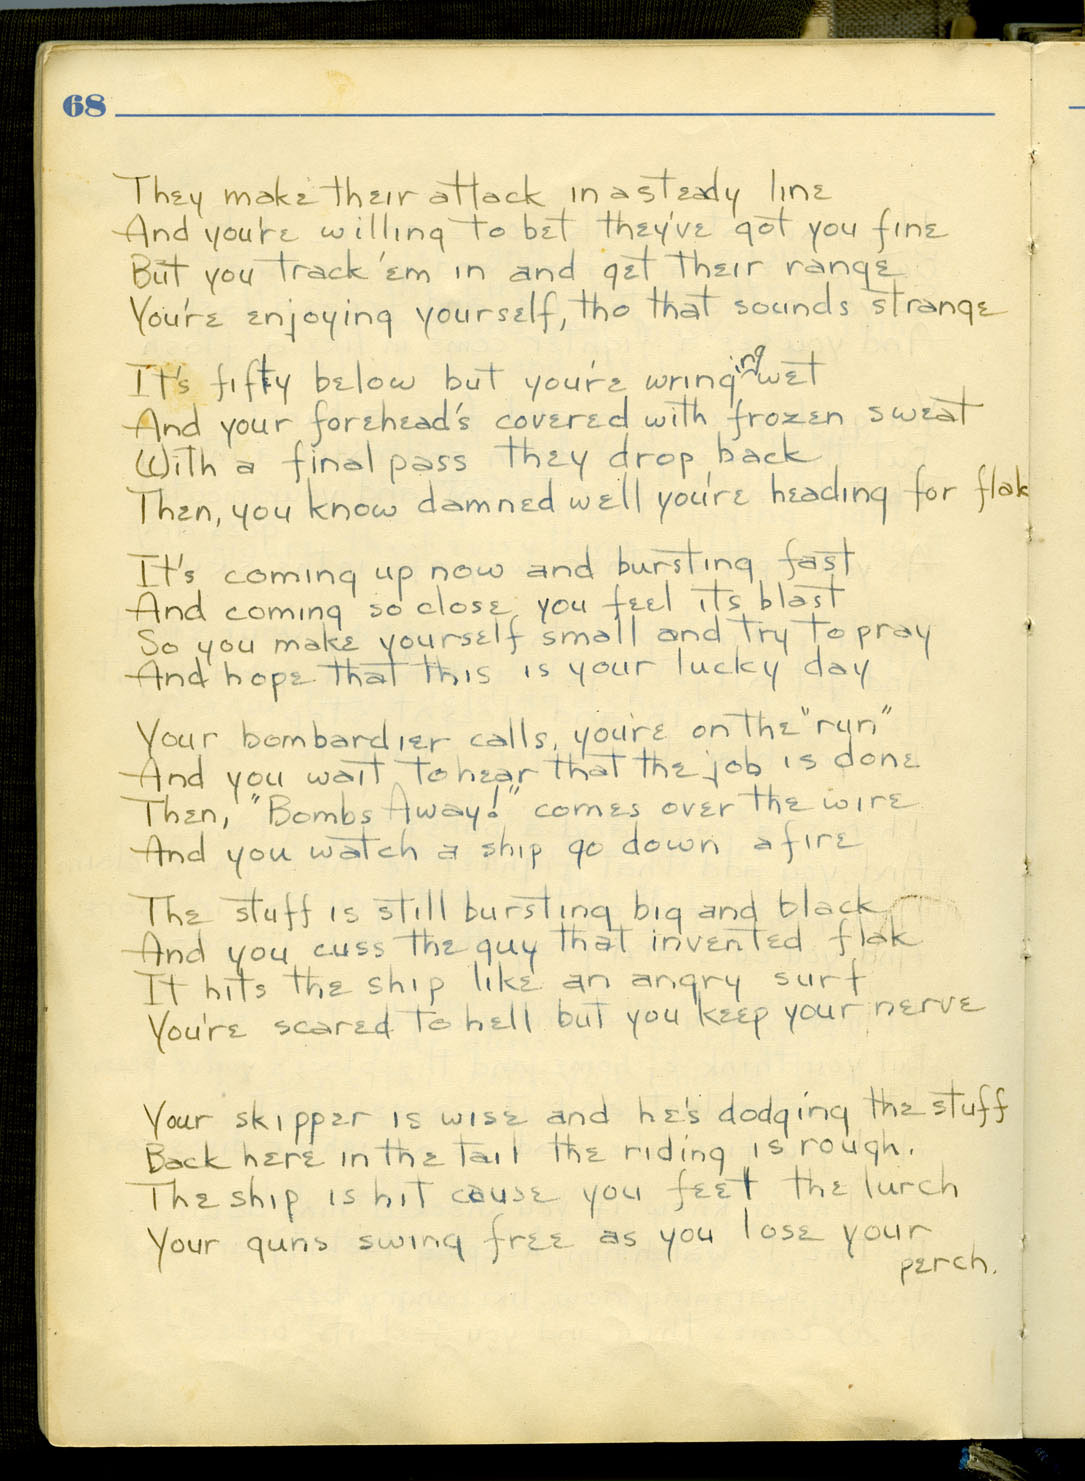 68
They make their attack in a steady line
And you're willing to bet they've got you fine
But you track 'em in and get their range
You're enjoying yourself, tho that sounds strange
It's fifty below but you're wringing wet
And your forehead's covered with frozen sweat
With a final pass they drop back
Then, you know damned well you're heading for flak
It's coming up now and bursting fast
And coming so close you feel its blast
So you make yourself small and try to pray
And hope that this is your lucky day
Your bombardier calls, you're on the "run"
And you wait to hear that the job is done
Then, "Bombs Away!" comes over the wire
And you watch a ship go down afire
The stuff is still bursting big and black
And you cuss the guy that invented flak
It hits the ship like an angry surf
You're scared to hell but you keep your nerve
Your skipper is wise and he's dodging the stuff
Back here in the tail the riding is rough.
The ship is hit cause you feel the lurch
Your guns swing free as you lose your
perch.